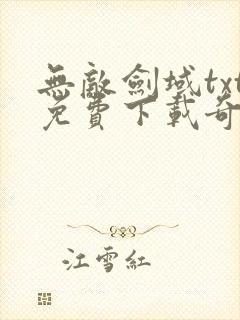 無敵劍域txt
免費下載奇
江雪紅